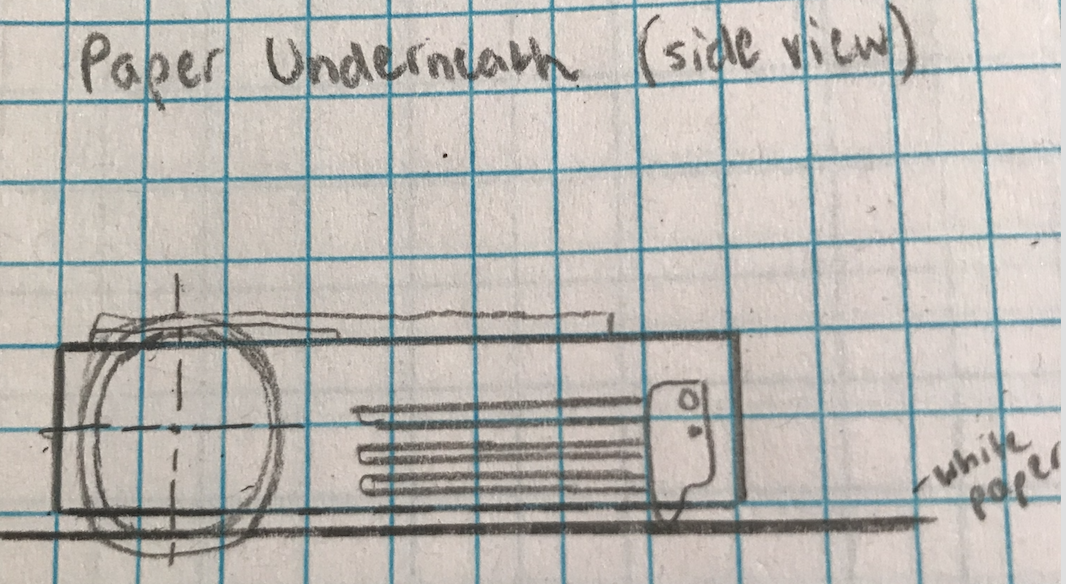 Paper Underneath (side view)
white
paper